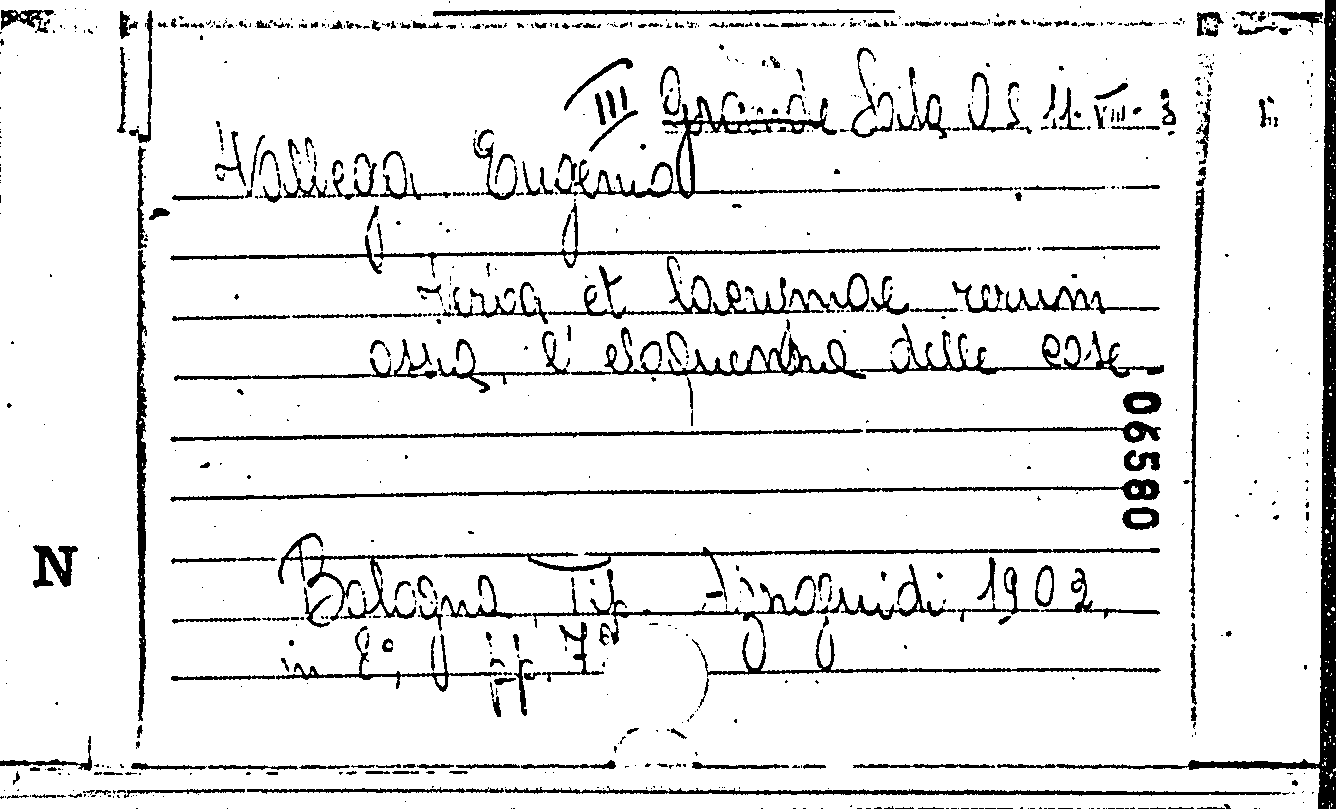 III Grande Sala O S 11-VIII-3
Vallega Eugenio
Feria et lacrimae rerum
ossia, l' eloquenza delle cose
06580
N
Bologna, Tip. Azzoguidi, 1902,
in 8°, pp. 7